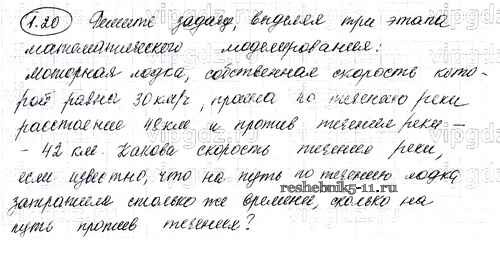 1.20 Решите задачу, выделяя три этапа
математического моделирования:
Моторная лодка, собственная скорость кото-
рой равна 30 км/ч, прошла по течению реки
расстояние 48 км и против течения реки -
- 42 км. Какова скорость течения реки,
если известно, что на путь по течению лодка
reshebnik5-11.ru
затратила столько же времени, сколько на
путь против течения?